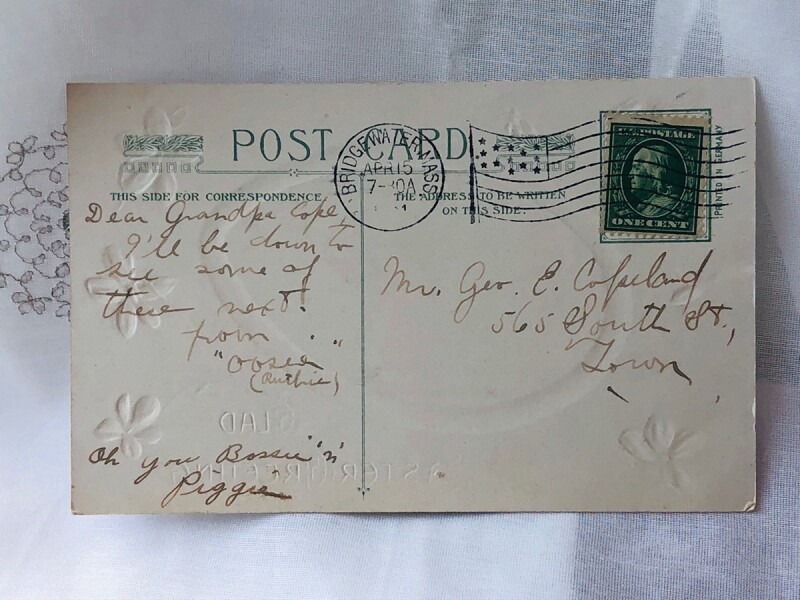 POST CARD
THIS SIDE FOR CORRESPONDENCE
THE ADDRESS TO BE WRITTEN
ON THIS SIDE.
BRIDGEWATER, MASS
APR 15
7-30A
U.S. POSTAGE
ONE CENT
PRINTED IN GERMANY
Dear Grandpa Cope,
I'll be down to
see some of
these next.
from
"Oosee"
(Ruthie)
Oh you Bossie 'n'
Piggie
Mr. Geo. E. Copeland
565 South St.,
Town
GLAD
EASTER GREETING